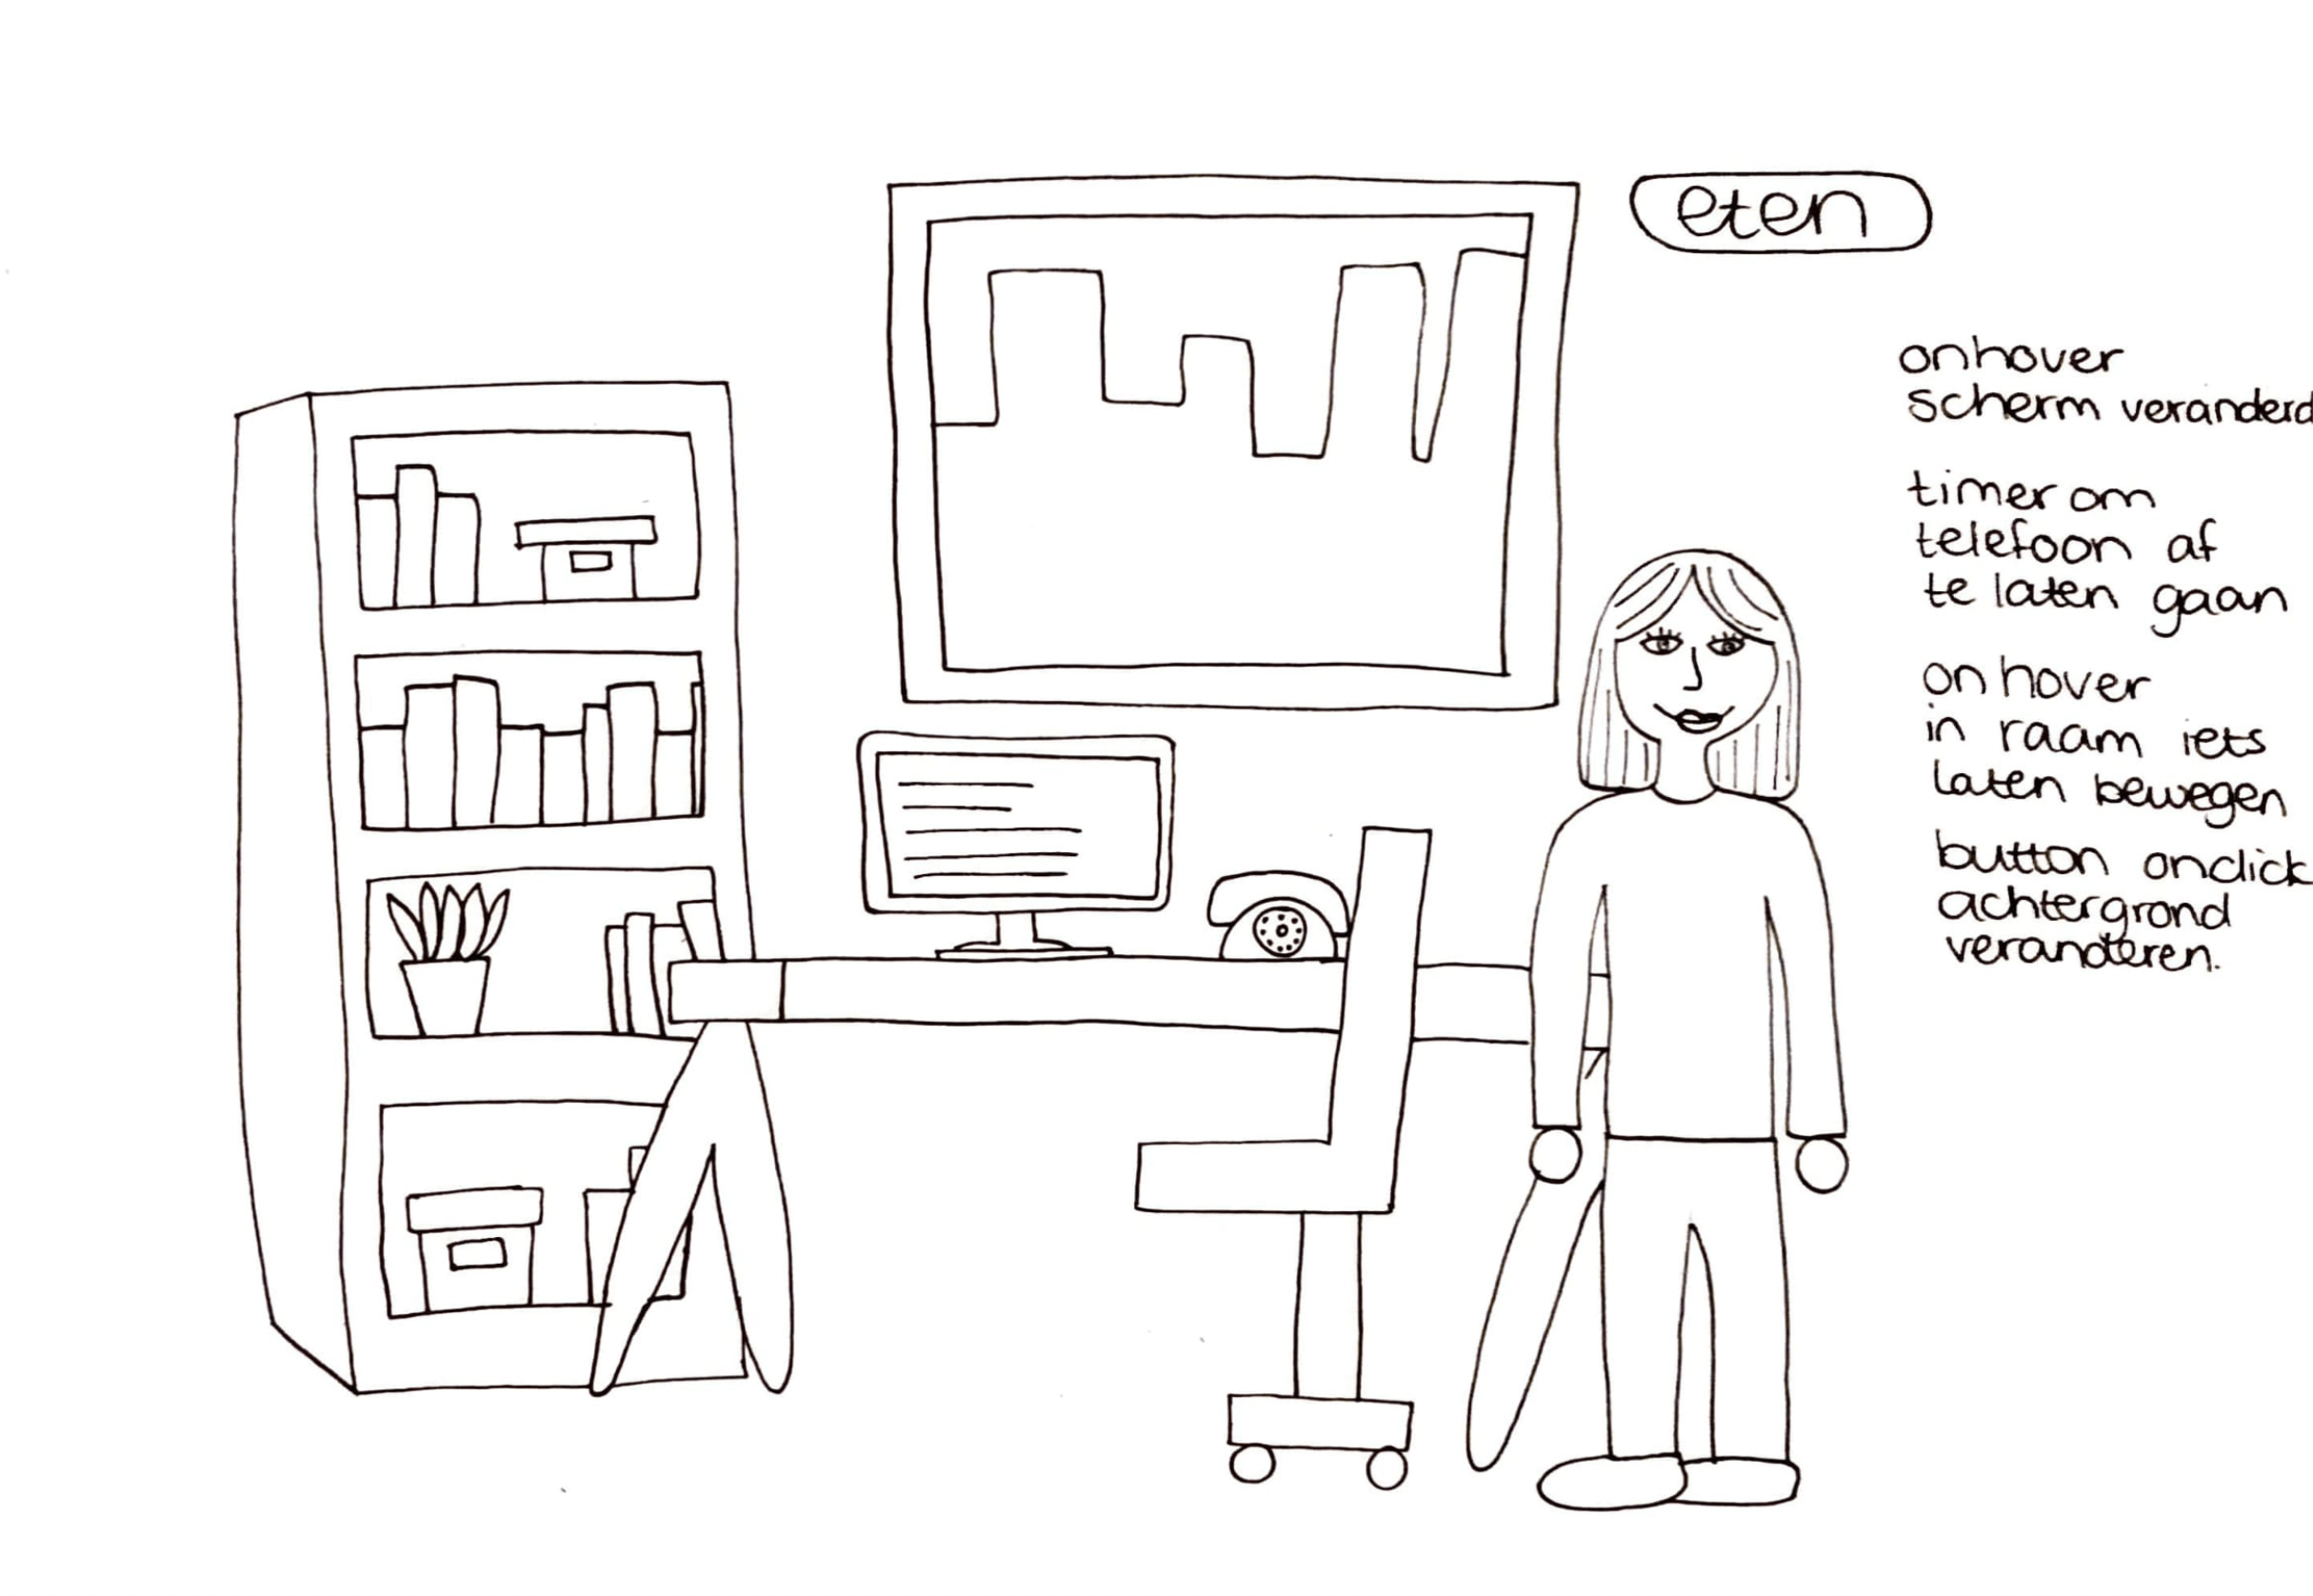 eten
onhover
scherm veranderd
timer om
telefoon af
te laten gaan
on hover
in raam iets
laten bewegen
button onclick
achtergrond
veranderen.